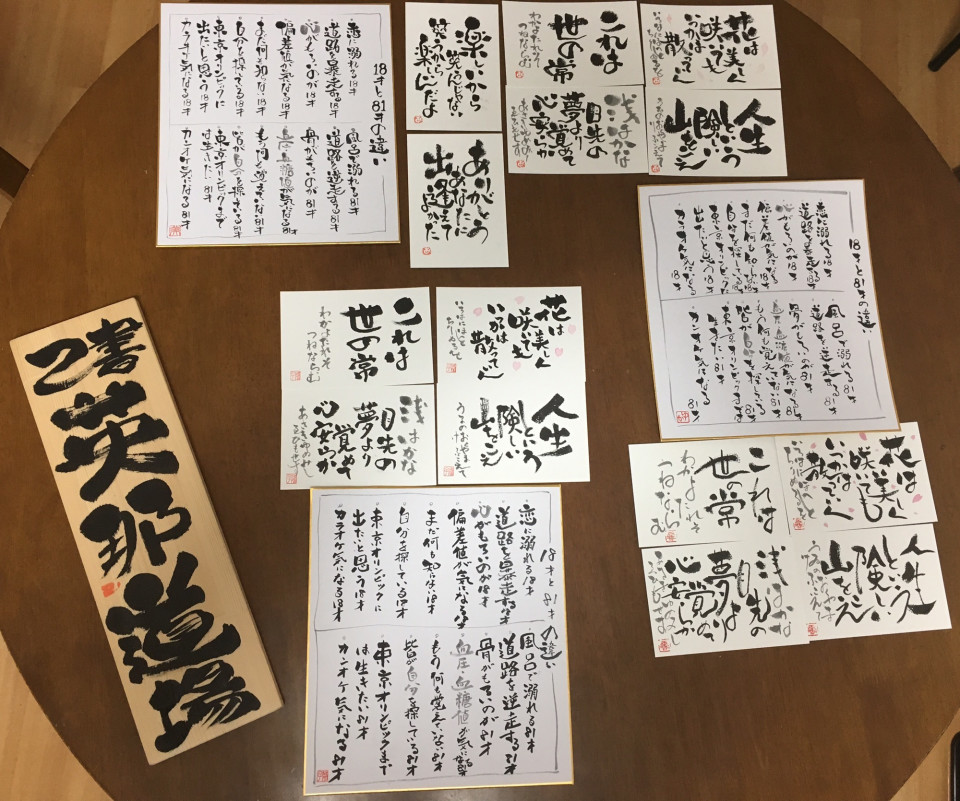 18才と81才の違い
恋に溺れる18才
道路を暴走する18才
心がもろいのが18才
偏差値が気になる18才
まだ何も知らない18才
自分を探している18才
東京オリンピックに
出たいと思う18才
カラオケ気になる18才
風呂で溺れる81才
道路を逆走する81才
骨がもろいのが81才
血圧・血糖値が気になる81才
もう何も覚えていない81才
皆が自分を探している81才
東京オリンピックまで
は生きたい81才
カンオケ気になる81才
楽しいから
笑うんじゃない
笑うから
楽しいんだよ
ありがとう
あなたに
出逢えて
良かった
花は美しく
咲いても
いつかは
散ってゆく
いろはにほへと
ちりぬるを
これは
世の常
わがよたれそ
つねならむ
人生
という
険しい
山をこえ
うゐのおくやま
けふこえて
浅はかな
目先の
夢より
覚めて
心安らか
あさきゆめみし
ゑひもせず
18才と81才の違い
恋に溺れる18才
道路を暴走する18才
心がもろいのが18才
偏差値が気になる18才
まだ何も知らない18才
自分を探している18才
東京オリンピックに
出たいと思う18才
カラオケ気になる18才
風呂で溺れる81才
道路を逆走する81才
骨がもろいのが81才
血圧・血糖値が気になる81才
もう何も覚えていない81才
皆が自分を探している81才
東京オリンピックまで
は生きたい81才
カンオケ気になる81才
花は美しく
咲いても
いつかは
散ってゆく
いろはにほへと
ちりぬるを
これは
世の常
わがよたれそ
つねならむ
人生
という
険しい
山をこえ
うゐのおくやま
けふこえて
浅はかな
目先の
夢より
覚めて
心安らか
あさきゆめみし
ゑひもせず
己書
英那道場
花は美しく
咲いても
いつかは
散ってゆく
いろはにほへと
ちりぬるを
これは
世の常
わがよたれそ
つねならむ
人生
という
険しい
山をこえ
浅はかな
目先の
夢より
覚めの
心安らか
18才と81才の違い
恋に溺れる18才
道路を暴走する18才
心がもろいのが18才
偏差値が気になる18才
まだ何も知らない18才
自分を探している18才
東京オリンピックに
出たいと思う18才
カラオケ気になる18才
風呂で溺れる81才
道路を逆走する81才
骨がもろいのが81才
血圧・血糖値が気になる81才
もう何も覚えていない81才
皆が自分を探している81才
東京オリンピックまで
は生きたい81才
カンオケ気になる81才